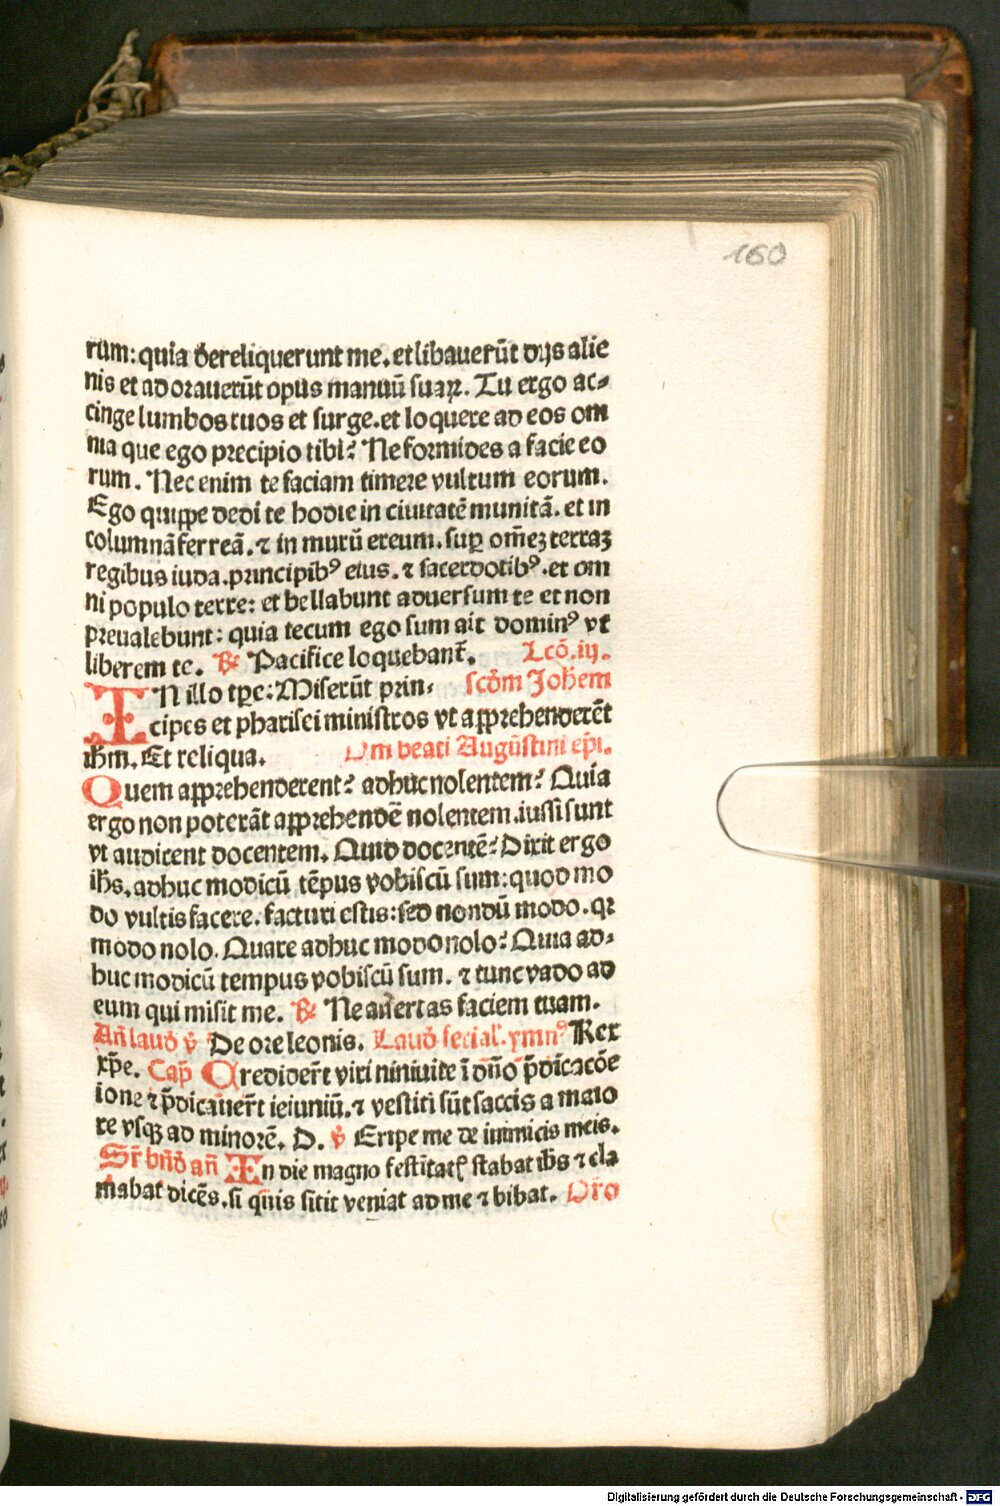 160
rum: quia dereliquerunt me. et libauerūt dijs alie
nis et adorauerūt opus manuū suaꝝ. Tu ergo ac⸗
cinge lumbos tuos et surge. et loquere ad eos om
nia que ego precipio tibi? Ne formides a facie eo
rum. Nec enim te faciam timere vultum eorum.
Ego quippe dedi te hodie in ciuitatē munitā. et in
columnā ferreā. ⁊ in murū ereum. suꝑ om̄eꝫ terraꝫ
regibus iuda. principibꝰ eius. ⁊ sacerdotibꝰ. et om
ni populo terre: et bellabunt aduersum te et non
preualebunt: quia tecum ego sum ait dominꝰ vt
liberem te. ℟ Pacifice loquebanť. Lcō. iij.
IN illo tꝑe: Miserūt prin⸗ scd̄m Joh̄em
cipes et pharisei ministros vt apprehenderēt
ih̄m. Et reliqua. Om̄ beati Augustini ep̄i.
Quem apprehenderent? adhuc nolentem? Quia
ergo non poterāt apprehendē nolentem. iussi sunt
vt audirent docentem. Quid docentē? Dixit ergo
ih̄s. adhuc modicū tēpus vobiscū sum: quod mo
do vultis facere. facturi estis: sed nondū modo. qꝛ
modo nolo. Quare adhuc modo nolo? Quia ad⸗
huc modicū tempus vobiscū sum. ⁊ tunc vado ad
eum qui misit me. ℟ Ne auertas faciem tuam.
Añ laud̄ v̄ De ore leonis. Laud̄ ferial. ymnꝰ Rex
xp̄e. Cap̄ Crediderťt viri niniuite ī dn̄o p̄dicacōe
ione ⁊ p̄dicauer̄t ieiuniū. ⁊ vestiti sūt saccis a maio
re vsqꝫ ad minorē. D. v̄ Eripe me de inimicis meis.
Sr̄ bn̄d añ In die magno festitatꝭ stabat ih̄s ⁊ cla
mabat dicēs. si qūis sitit veniat ad me ⁊ bibat. Or̄o
Digitalisierung gefördert durch die Deutsche Forschungsgemeinschaft - DFG